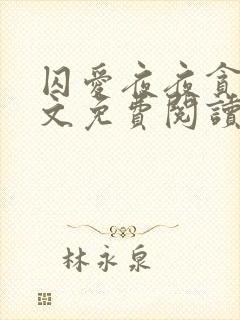 囚愛夜夜貪
文免費閱讀
林永泉